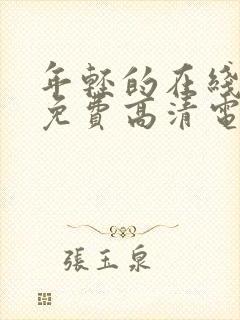 年轻的在线
免費高清電
張玉泉